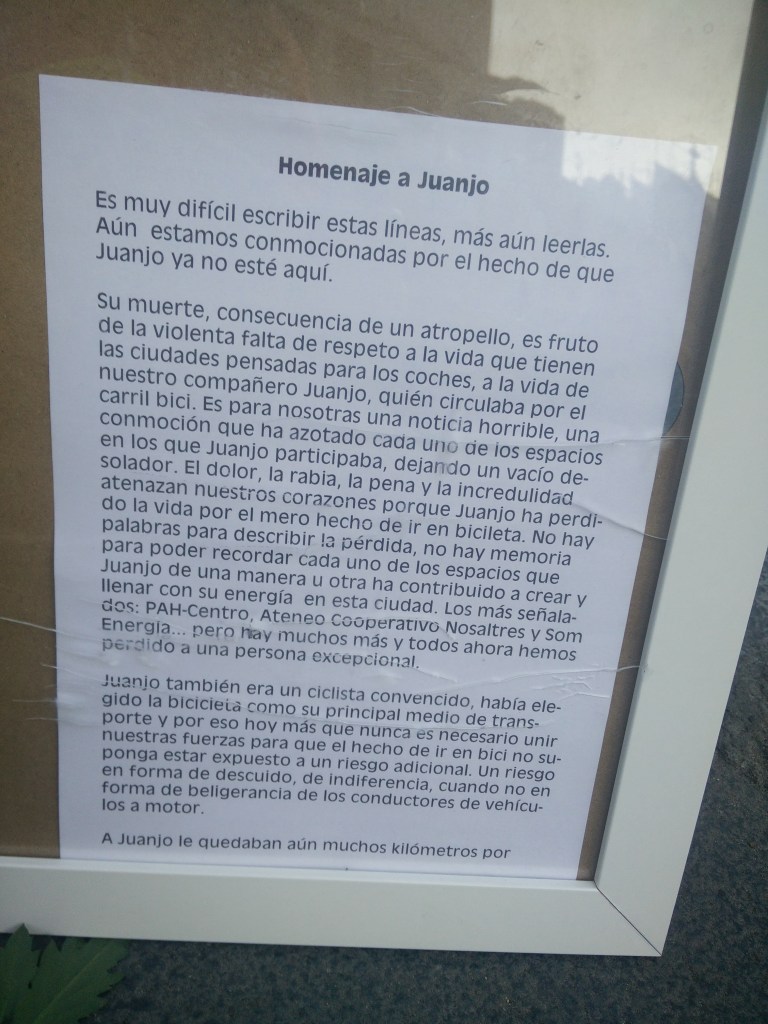 Homenaje a Juanjo
Es muy difícil escribir estas líneas, más aún leerlas.
Aún estamos conmocionadas por el hecho de que
Juanjo ya no esté aquí.
Su muerte, consecuencia de un atropello, es fruto
de la violenta falta de respeto a la vida que tienen
las ciudades pensadas para los coches, a la vida de
nuestro compañero Juanjo, quién circulaba por el
carril bici. Es para nosotras una noticia horrible, una
conmoción que ha azotado cada uno de los espacios
en los que Juanjo participaba, dejando un vacío de-
solador. El dolor, la rabia, la pena y la incredulidad
atenazan nuestros corazones porque Juanjo ha perdi-
do la vida por el mero hecho de ir en bicileta. No hay
palabras para describir la pérdida, no hay memoria
para poder recordar cada uno de los espacios que
Juanjo de una manera u otra ha contribuido a crear y
llenar con su energía en esta ciudad. Los más señala-
dos: PAH-Centro, Ateneo Cooperativo Nosaltres y Som
Energia... pero hay muchos más y todos ahora hemos
perdido a una persona excepcional.
Juanjo también era un ciclista convencido, había ele-
gido la bicicleta como su principal medio de trans-
porte y por eso hoy más que nunca es necesario unir
nuestras fuerzas para que el hecho de ir en bici no su-
ponga estar expuesto a un riesgo adicional. Un riesgo
en forma de descuido, de indiferencia, cuando no en
forma de beligerancia de los conductores de vehícu-
los a motor.
A Juanjo le quedaban aún muchos kilómetros por